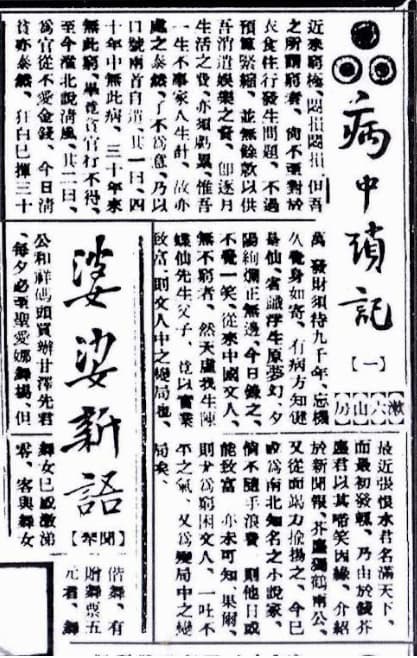 病中瑣記
【一】
漱六山房
近來窮極悶損悶損、但吾
之所謂窮者、尚不至對於
衣食住行發生問題、不過
預算緊縮、並無餘款以供
吾消遣娛樂之資、卽逐月
生活之費、亦須斟酌、惟吾
一生不事家人生計、故亦
處之泰然、了不為意、乃以
口號兩首自遣、其一曰、四
十年中無此病、三十年來
無此窮、畢竟貪官行不得、
至今淮北說清風、其二曰、
為官從不愛金錢、今日清
貧亦泰然、狂白已揮三十
萬、發財須待九千年、忘機
久覺身如寄、有病方知健
是仙、省識浮生原夢幻、夕
陽絢爛正無邊、今日錄之、
不覺一笑、從來中國文人、
無不窮者、然天虛我生陳
蝶仙先生父子、竟以實業
致富、則文人中之變局也、
最近張恨水君名滿天下、
而最初發軔、乃由於錢芥
塵君以其啼笑因緣、介紹
於新聞報、芥塵獨鶴兩公、
又從而竭力揄揚之、今已
成為南北知名之小說家、
倘不隨手浪費、則他日或
能致富、亦未可知、果爾、
則尤為窮困文人、一吐不
平之氣、又為變局中之變
局矣、
婆娑新語
【聞琴】
公和祥碼頭買辦甘澤先君
、每夕必至聖愛娜舞場、但
舞女已感激涕
零、客與舞女
偕舞、有
贈舞票五
元者、舞